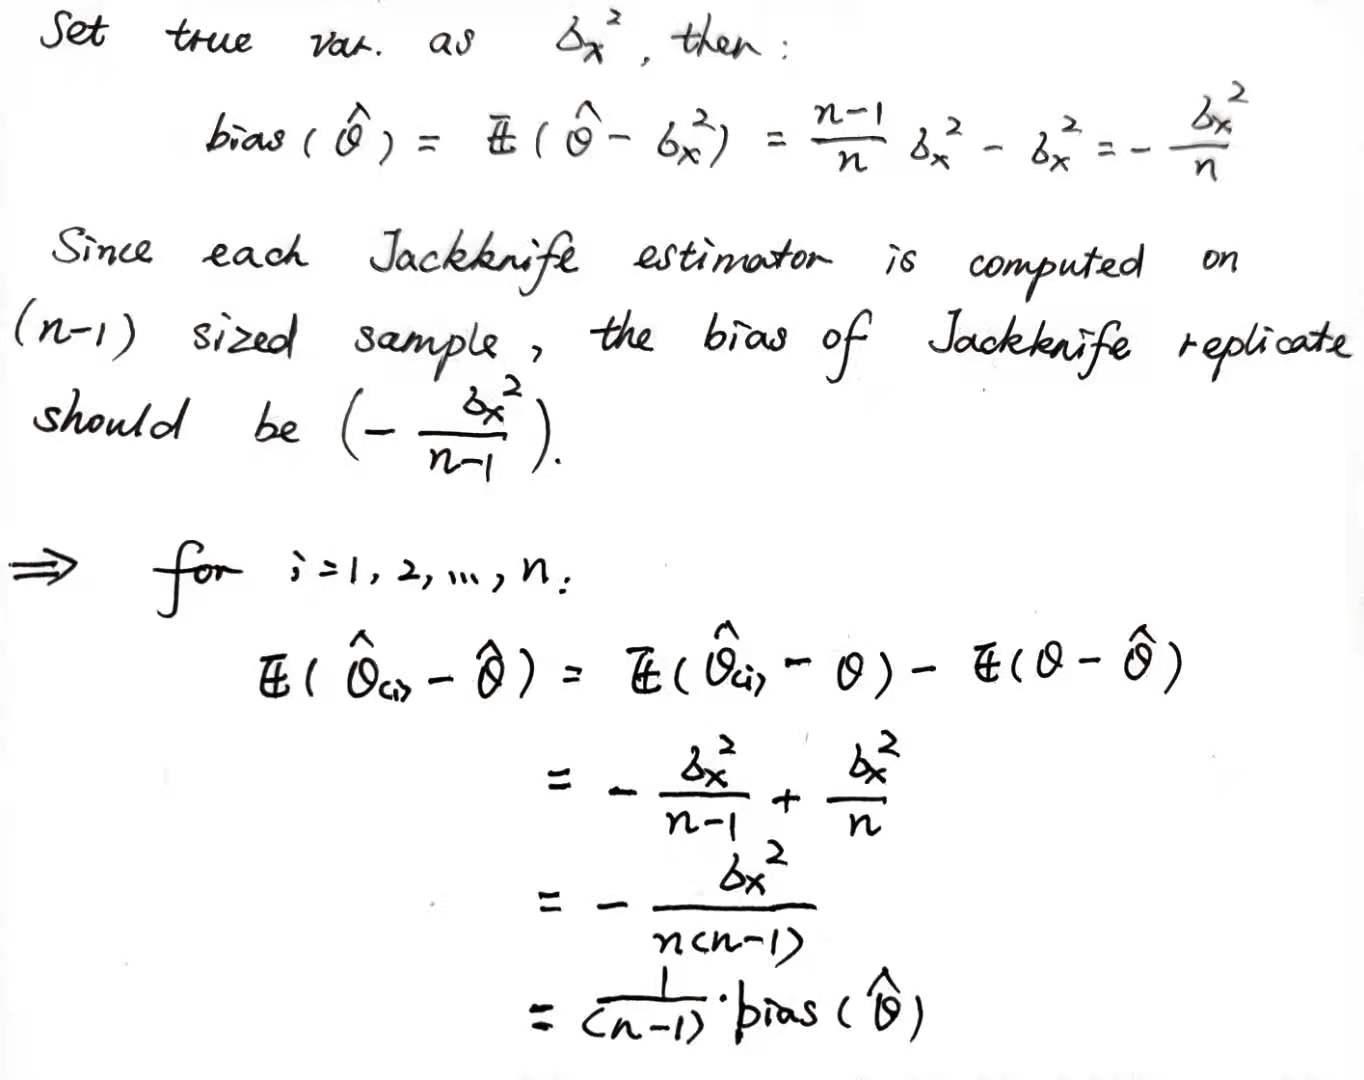 Set true var. as σ_x², then:
bias(θ̂) = 𝔼(θ̂ - σ_x²) = (n-1)/n σ_x² - σ_x² = - σ_x²/n
Since each Jackknife estimator is computed on
(n-1) sized sample, the bias of Jackknife replicate
should be (- σ_x²/(n-1)).
⇒ for i=1, 2, ..., n:
𝔼(θ̂_(i) - θ̂) = 𝔼(θ̂_(i) - θ) - 𝔼(θ - θ̂)
= - σ_x²/(n-1) + σ_x²/n
= - σ_x²/(n(n-1))
= 1/(n-1) · bias(θ̂)